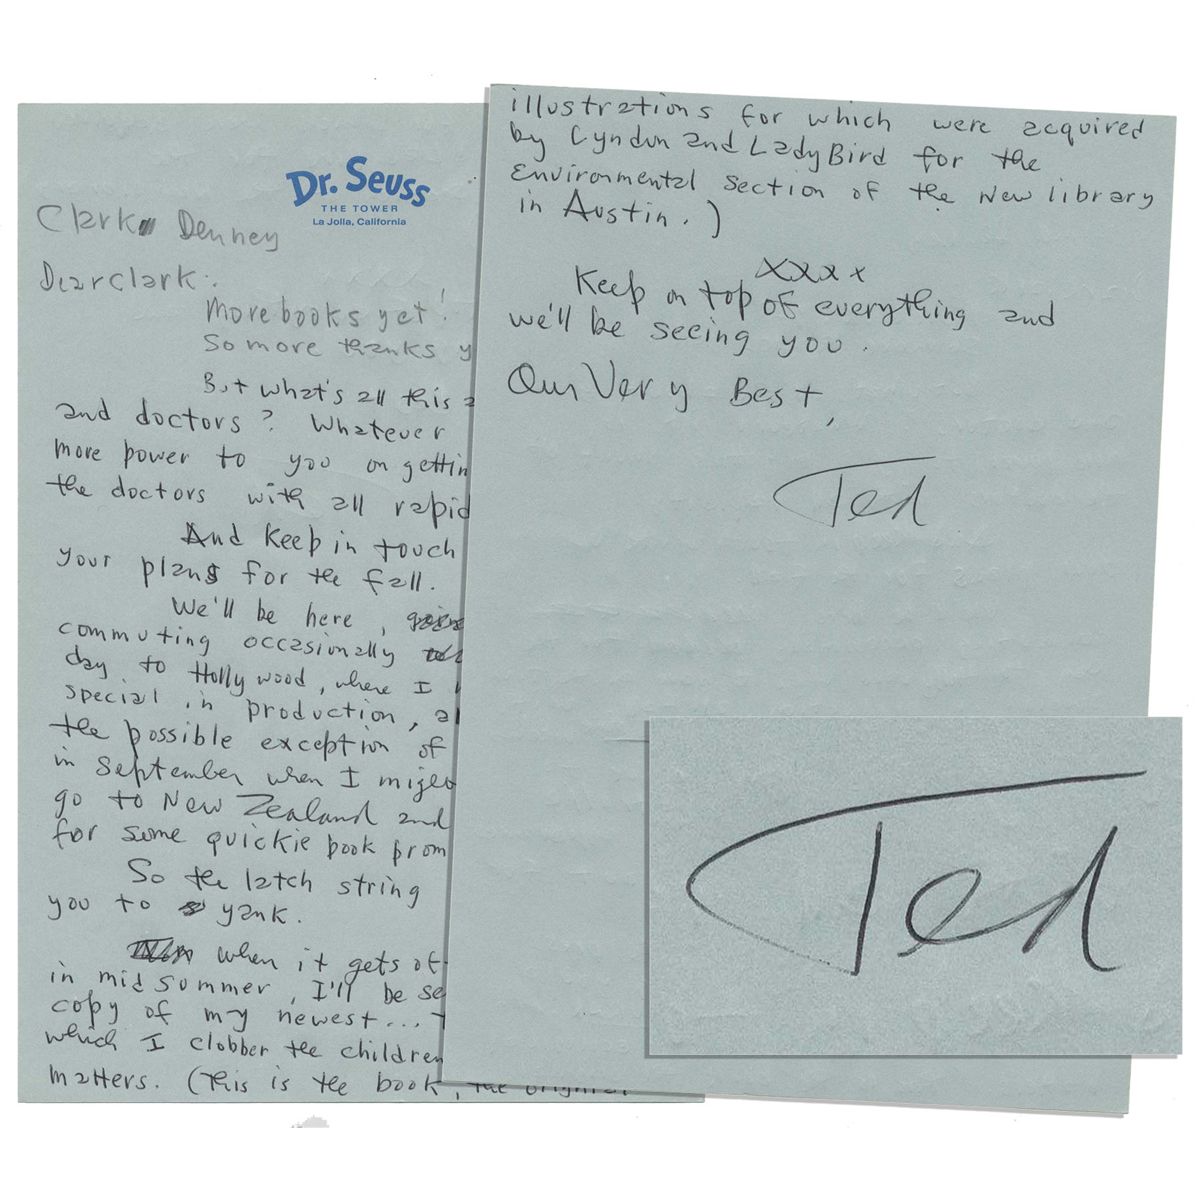 Dr. Seuss
THE TOWER
La Jolla, California
Clark Denney
Dear Clark:
More books yet!
So more thanks y
But what's all this
and doctors? Whatever
more power to you on gettin
the doctors with all rapid
And Keep in touch
your plans for the fall.
We'll be here,
commuting occasionally
day to Hollywood, where I
special in production, a
the possible exception of
in September when I might
go to New Zealand and
for some quickie book prom
So the latch string
you to yank.
when it gets of
in mid sommer, I'll be se
copy of my newest...
which I clobber the children
matters. (This is the book, the original
illustrations for which were acquired
by Lyndon and LadyBird for the
Environmental section of the New library
in Austin.)
xxxx
Keep on top of everything and
we'll be seeing you.
Our Very Best,
Ted
Ted